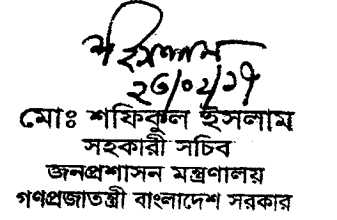 ২৩/০২/২৭
মোঃ শফিকুল ইসলাম
সহকারী সচিব
জনপ্রশাসন মন্ত্রণালয়
গণপ্রজাতন্ত্রী বাংলাদেশ সরকার